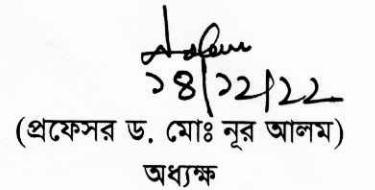 ১৪/১২/২২
(প্রফেসর ড. মোঃ নূর আলম)
অধ্যক্ষ